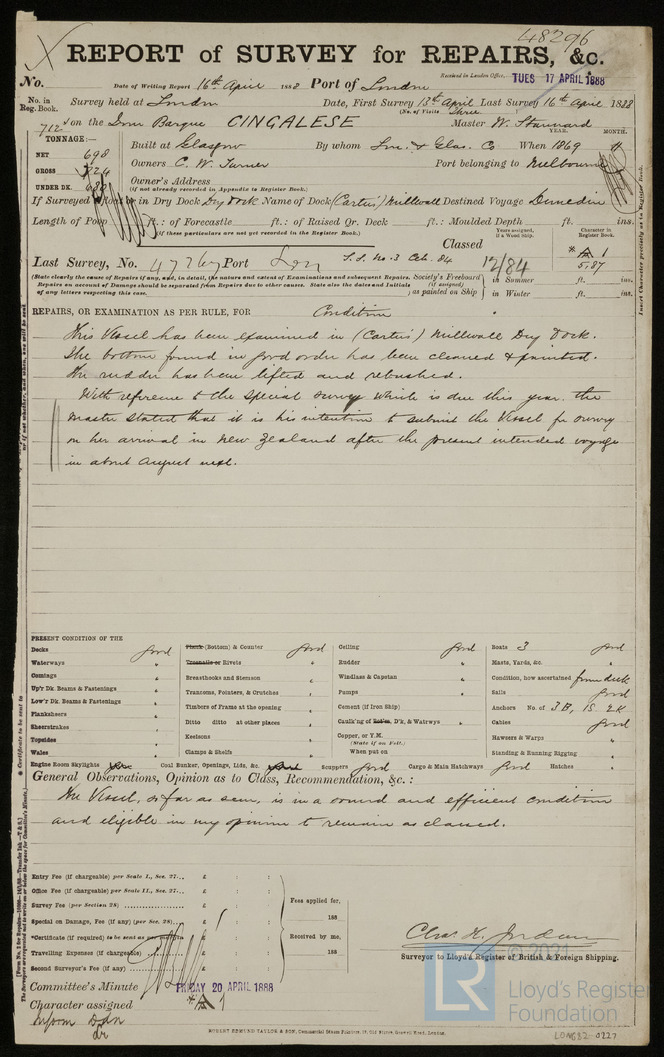 48296
REPORT of SURVEY for REPAIRS, &c.
Received in London Office, TUES 17 APRIL 1888
No. Date of Writing Report 16th April 1888 Port of London
No. in Reg. Book. Survey held at London Date, First Survey 13th April Last Survey 16th April 1888
(No. of Visits Three
712 on the Iron Barque CINGALESE Master W. Stannard
TONNAGE:—
YEAR. MONTH.
NET 698 Built at Glasgow By whom Lon. & Glas. Co When 1869 11
GROSS 724 Owners C. W. Turner Port belonging to Melbourne
UNDER DK. Owner's Address
(if not already recorded in Appendix to Register Book.)
If Surveyed Afloat or in Dry Dock Dry Dock Name of Dock (Carter's) Millwall Destined Voyage Dunedin
Length of Poop ft.: of Forecastle ft.: of Raised Qr. Deck ft.: Moulded Depth ft. ins.
(if these particulars are not yet recorded in the Register Book.)
Years assigned, if a Wood Ship. Character in Register Book.
Classed
Last Survey, No. 47767 Port Lon S.S. No. 3 Feb. 84 12/84 * A 1 5,87
(State clearly the cause of Repairs if any, and, in detail, the nature and extent of Examinations and subsequent Repairs. Society's Freeboard in Summer ft. ins.
Repairs on account of Damage should be separated from Repairs due to other causes. State also the dates and Initials (if assigned)
of any letters respecting this case.) as painted on Ship in Winter ft. ins.
REPAIRS, OR EXAMINATION AS PER RULE, FOR Condition
This Vessel has been examined in (Carter's) Millwall Dry Dock.
The bottom found in good order has been cleaned & painted.
The rudder has been lifted and rebushed.
With reference to the special survey which is due this year the
Master stated that it is his intention to submit the Vessel for survey
on her arrival in New Zealand after the present intended voyage
in about August next.
PRESENT CONDITION OF THE
Decks good
Waterways "
Comings "
Up'r Dk. Beams & Fastenings "
Low'r Dk. Beams & Fastenings "
Planksheers "
Sheerstrakes "
Topsides "
Wales "
Plank (Bottom) & Counter good
Treenails or Rivets "
Breasthooks and Stemson "
Transoms, Pointers, & Crutches "
Timbers of Frame at the opening "
Ditto ditto at other places "
Keelsons "
Clamps & Shelfs "
Ceiling good
Rudder "
Windlass & Capstan "
Pumps "
Cement (if Iron Ship) "
Caulk'ng of Bot'm, D'k, & Watrwys "
Copper, or Y.M.
(State if on Felt.)
When put on
Boats 3 good
Masts, Yards, &c. "
Condition, how ascertained from deck
Sails good
Anchors No. of 3 B, 1 S. 2 K
Cables good
Hawsers & Warps "
Standing & Running Rigging "
Engine Room Skylights Coal Bunker, Openings, Lids, &c. Scuppers good Cargo & Main Hatchways good Hatches "
General Observations, Opinion as to Class, Recommendation, &c.:
The Vessel, so far as seen, is in a sound and efficient condition
and eligible in my opinion to remain as classed.
Entry Fee (if chargeable) per Scale I., Sec. 27... £ : :
Office Fee (if chargeable) per Scale II., Sec. 27... £ : :
Survey Fee (per Section 28) £ : :
Special on Damage, Fee (if any) (per Sec. 28)... £ : :
*Certificate (if required) to be sent as £ : :
Travelling Expenses (if chargeable) £ : :
Second Surveyor's Fee (if any) £ : :
Fees applied for,
188
Received by me,
188
Chas. K. Jordan
Surveyor to Lloyd's Register of British & Foreign Shipping.
Committee's Minute FRIDAY 20 APRIL 1888
Character assigned * A 1
Inform Ddn
© 2021
LR
Lloyd's Register
Foundation
ROBERT EDMUND TAYLOR & SON, Commercial Steam Printers,
LON682 0227